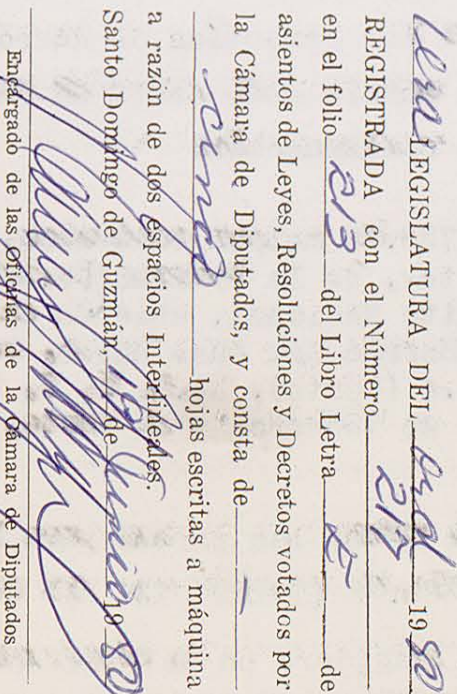 1era LEGISLATURA DEL Ord 1980
REGISTRADA con el Número
en el folio 213 del Libro Letra de
asientos de Leyes, Resoluciones y Decretos votados por
la Cámara de Diputados, y consta de
cinco hojas escritas a máquina
a razón de dos espacios Interlineales.
Santo Domingo de Guzmán, de Junio 1980
Encargado de las Oficinas de la Cámara de Diputados